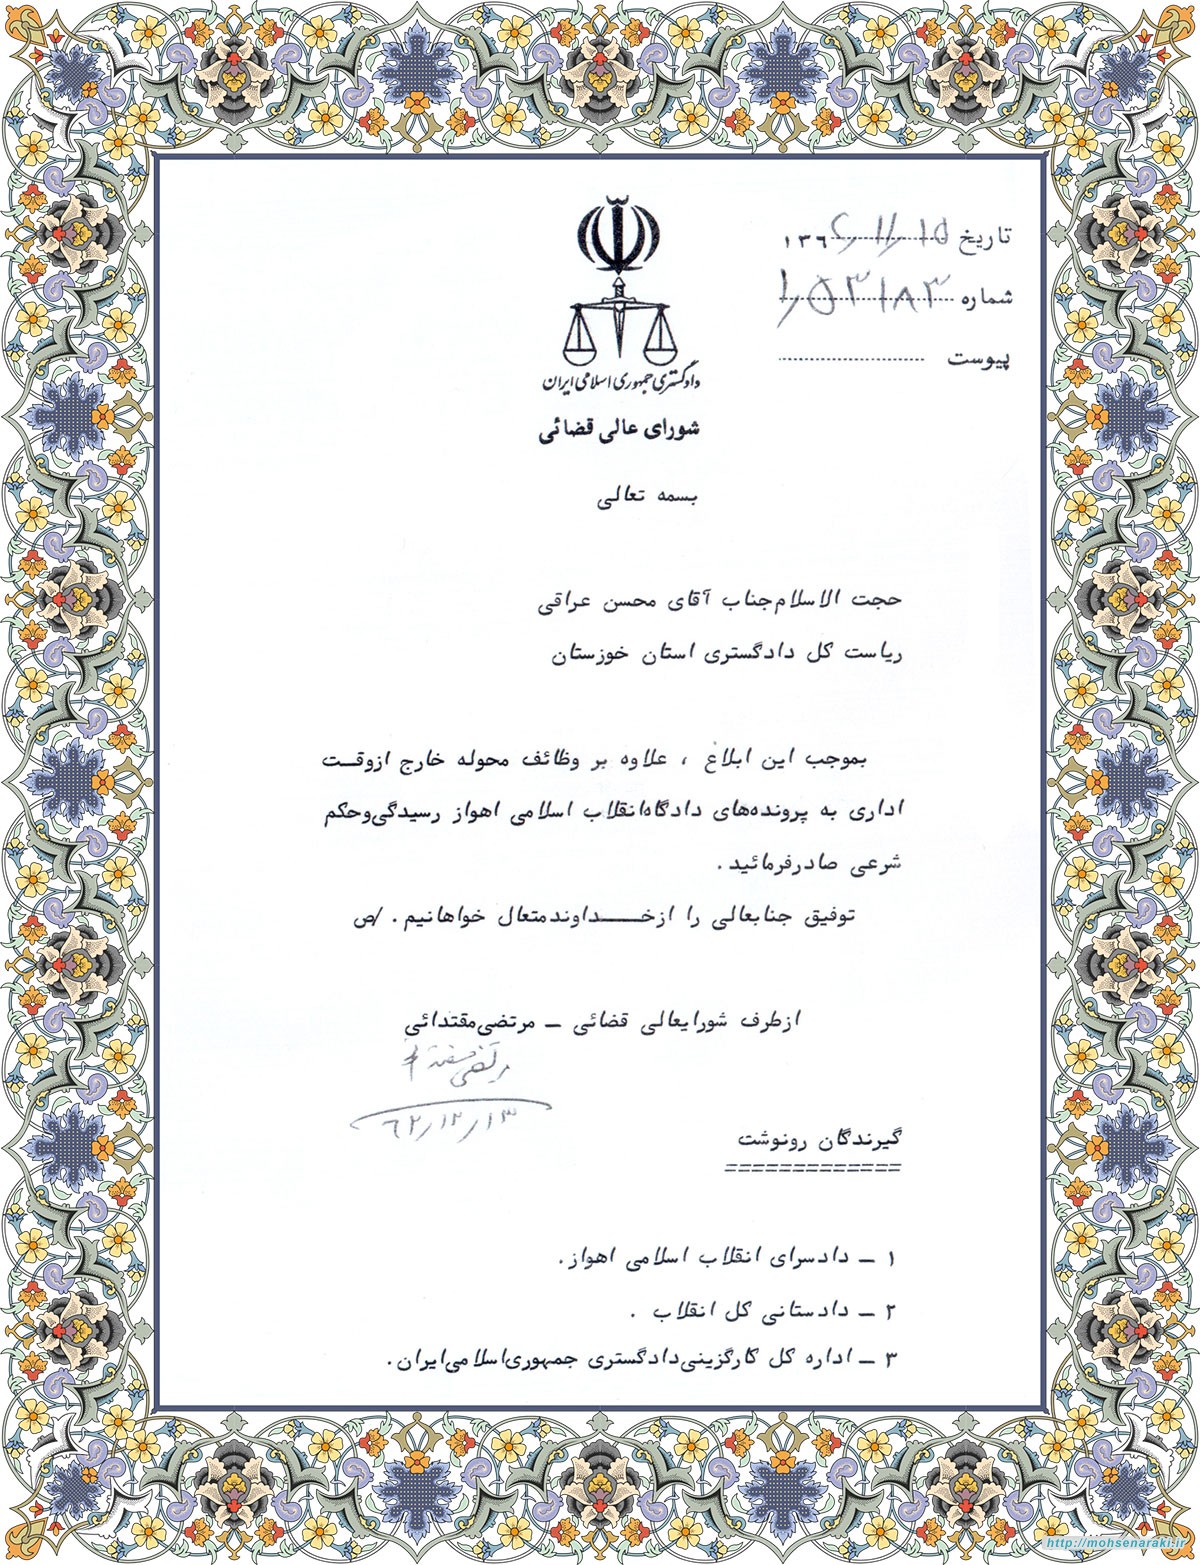 تاریخ ۱۵/۱۱/۱۳۶۲
شماره ۱/۵۳۱۸۳
پیوست
دادگستری جمهوری اسلامی ایران
شورای عالی قضائی
بسمه تعالی
حجت الاسلام جناب آقای محسن عراقی
ریاست کل دادگستری استان خوزستان
بموجب این ابلاغ ، علاوه بر وظائف محوله خارج ازوقت
اداری به پرونده‌های دادگاه انقلاب اسلامی اهواز رسیدگی وحکم
شرعی صادرفرمائید .
توفیق جنابعالی را ازخداوندمتعال خواهانیم . /ص
ازطرف شورایعالی قضائی ـ مرتضی مقتدائی
۶۲/۱۲/۱۳
گیرندگان رونوشت
=============
۱ ـ دادسرای انقلاب اسلامی اهواز .
۲ ـ دادستانی کل انقلاب .
۳ ـ اداره کل کارگزینی دادگستری جمهوری اسلامی ایران .
http://mohsenaraki.ir